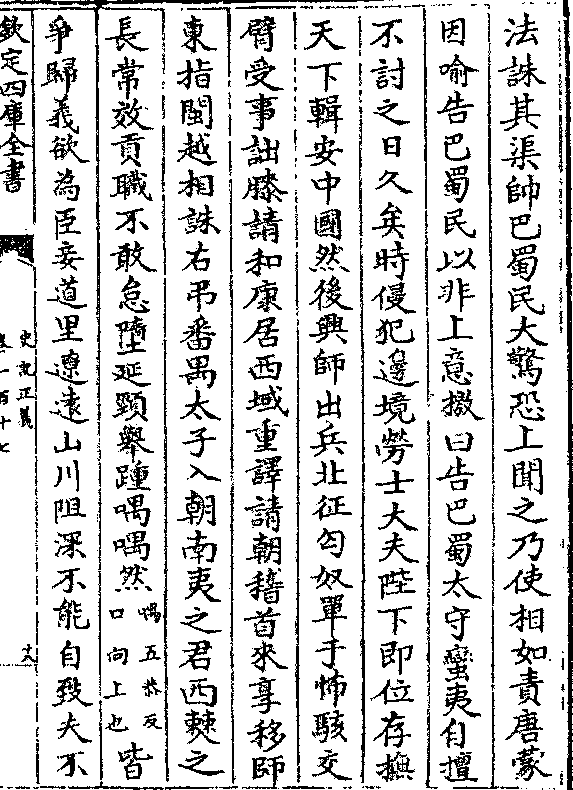 法誅其渠帥巴蜀民大驚恐上聞之乃使相如責唐蒙
因喻告巴蜀民以非上意檄曰告巴蜀太守蠻夷自擅
不討之日久矣時侵犯邊境勞士大夫陛下即位存撫
天下輯安中國然後興師出兵北征匈奴單于怖駭交
臂受事詘膝請和康居西域重譯請朝稽首來享移師
東指閩越相誅右弔番禺太子入朝南夷之君西僰之
長常效貢職不敢怠墮延頸舉踵喁喁然喁五恭反口向上也皆
爭歸義欲為臣妾道里遼遠山川阻深不能自致夫不
欽定四庫全書
史記正義
卷一百十七